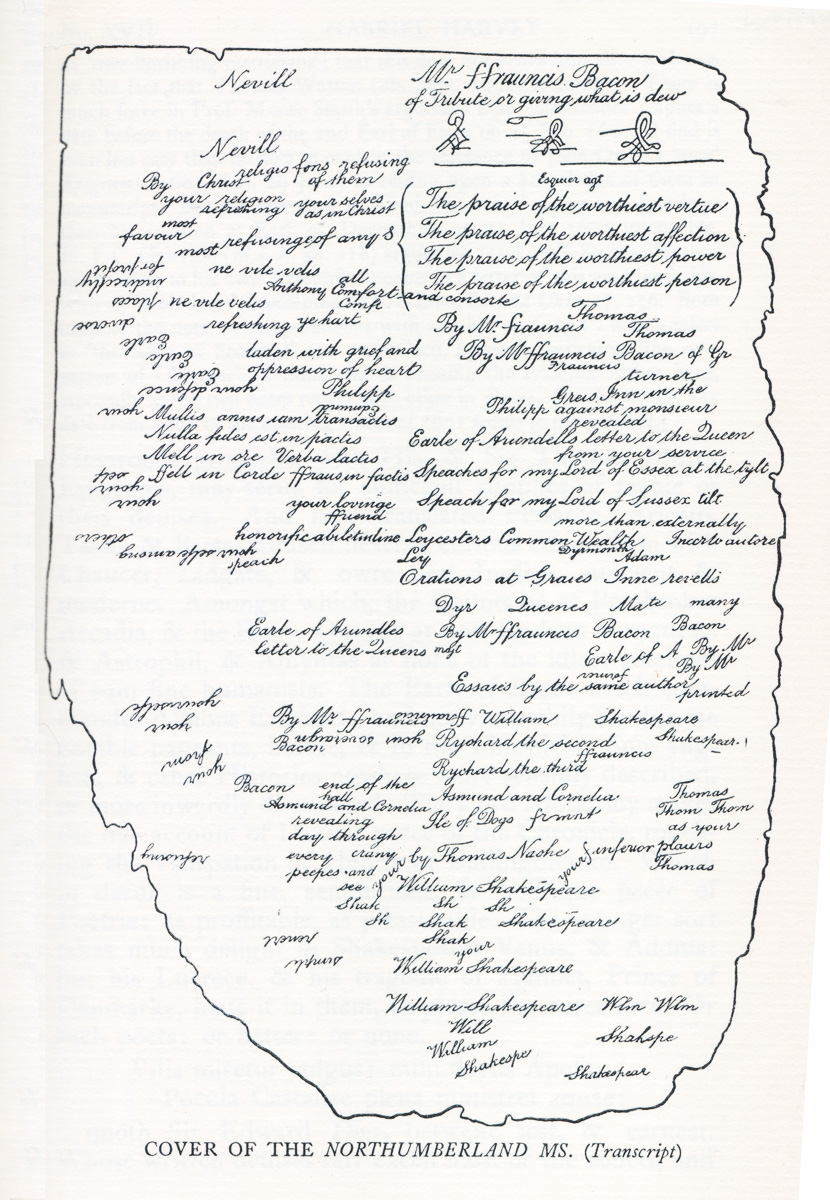 Nevill
Mr. ffrauncis Bacon
of Tribute or giving what is dew
Nevill
religio fons refusing
By Christ of them
your religion your selves
refreshing as in Christ
Esquier agt
The praise of the worthiest vertue
The praise of the worthiest affection
The praise of the worthiest power
The praise of the worthiest person
most
favour
most refusinge of any &
for profit
indirectly
ne vile velis
all
Anthony Comfort and consorte
place ne vile velis
Comft
diverse
refreshing ye hart
Thomas
By Mr ffrauncis Thomas
Earle
Earle
Earle
laden with grief and
oppression of heart
By Mr ffrauncis Bacon of Gr
Frauncis
turner
your defence
Philipp
Greis Inn in the
Philipp against monsieur
revealed
your Multis annis iam transactis
Nulla fides est in pactis
Mell in ore Verba lactis
ffell in Corde ffraus in factis
Earle of Arundells letter to the Queen
from your service
Speaches for my Lord of Essex at the tylt
your
your
your lovinge
ffriend
Speach for my Lord of Sussex tilt
more than externally
others
honorificabiletinline
Loycesters Common Wealth Incerto autore
speach
Ley
Dyrmonth
Adam
Orations at Graies Inne revells
Dyr Queenes Mate many
Earle of Arundles
letter to the Queens magt
By Mr ffrauncis Bacon Bacon
Earle of A By Mr
By Mr
Essaies by the same author
printed
yourselfe
your
By Mr ffrauncis
William Shakespeare
your sovereign
Bacon
Rychard the second Shakespear.
ffrauncis
Rychard the third
from
your
Bacon end of the
hall
Asmund and Cornelia
Asmund and Cornelia Thomas
revealing
Ile of Dogs frmnt Thom Thom
day through
as your
every crany
by Thomas Nashe inferior plaiers
peepes and
see your
your
Thomas
William Shakespeare
Shak Sh Sh
Sh Shak Shakespeare
Shak
your
William Shakespeare
William Shakespeare Wlm Wlm
Will
Shakspe
William
Shakespe
Shakespear
COVER OF THE NORTHUMBERLAND MS. (Transcript)